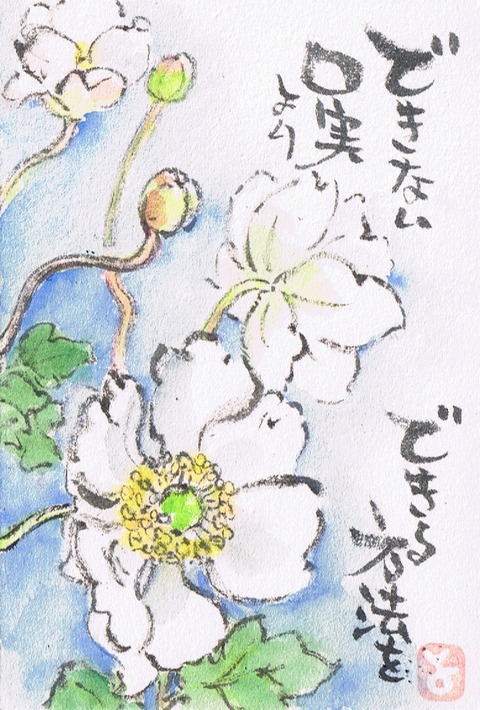 できない
口実
より
できる
方法を